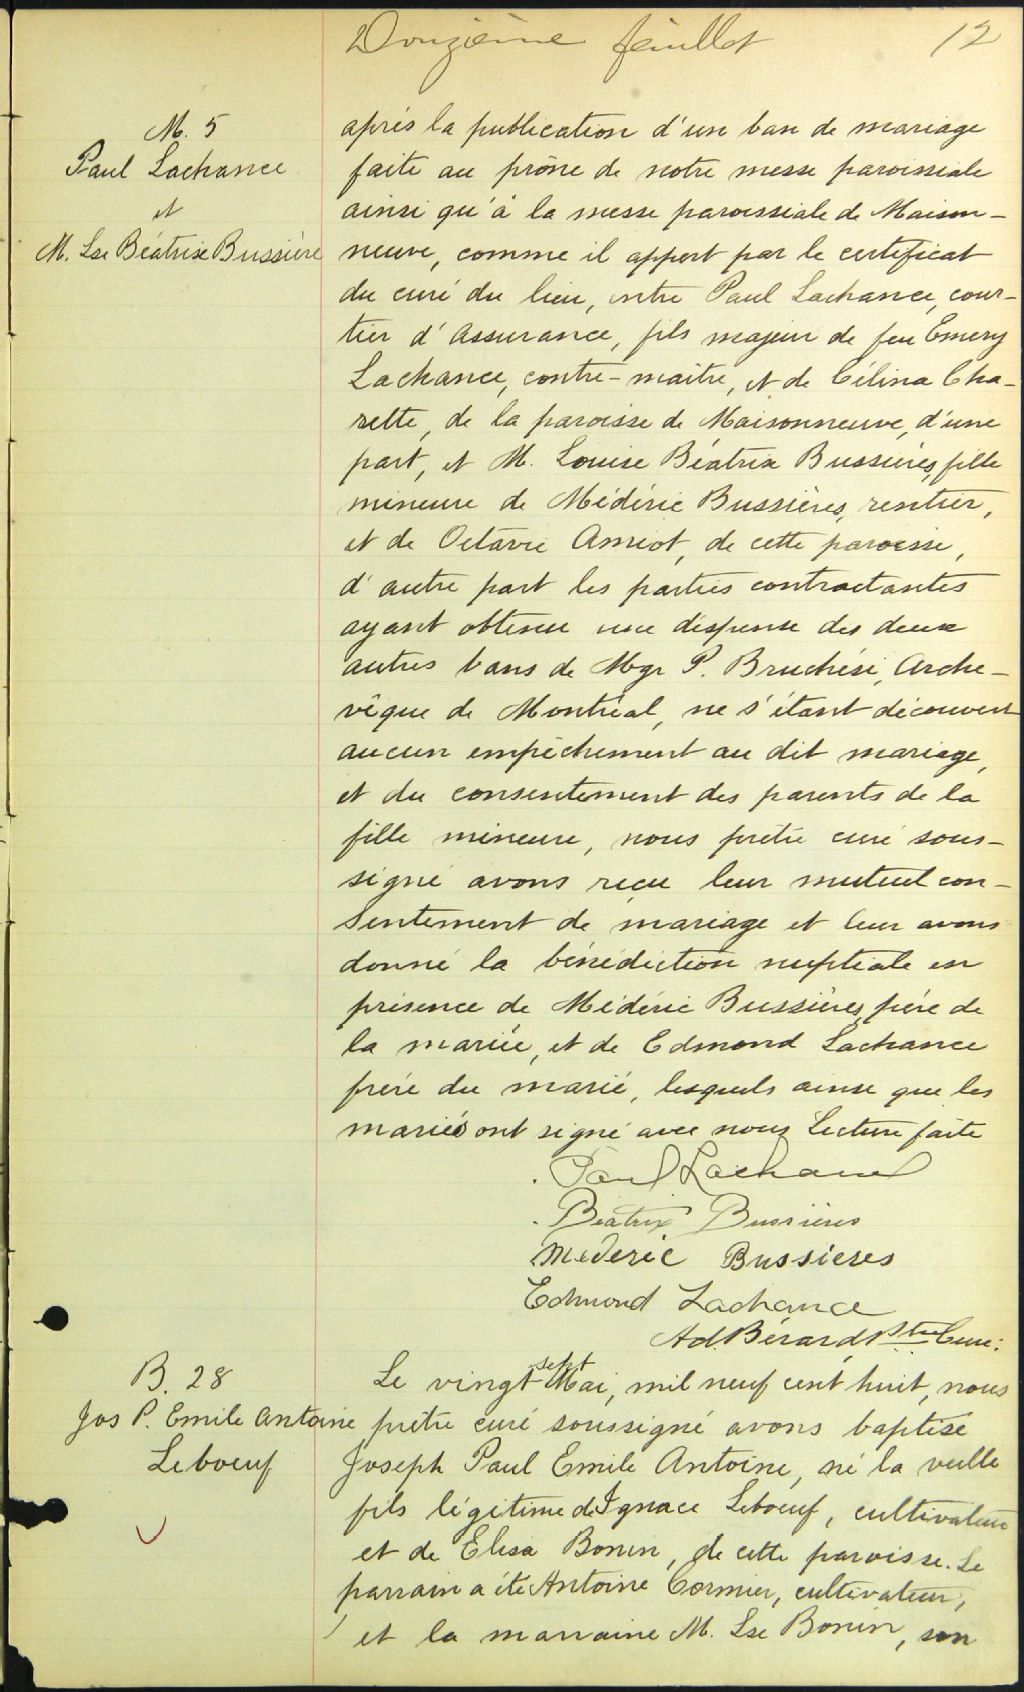 Douzième feuillet 12
M. 5
Paul Lachance
et
M. Lse Béatrixe Bussière
après la publication d'un ban de mariage
faite au prône de notre messe paroissiale
ainsi qu'à la messe paroissiale de Maison-
neuve, comme il appert par le certificat
du curé du lieu, entre Paul Lachance, cour-
tier d'Assurance, fils majeur de feu Emery
Lachance, contre-maître, et de Célina Cha-
rette, de la paroisse de Maisonneuve, d'une
part, et M. Louise Béatrix Bussières, fille
mineure de Médéric Bussières, rentier,
et de Octavie Amiot, de cette paroisse,
d'autre part les parties contractantes
ayant obtenu une dispense des deux
autres bans de Mgr P. Bruchési, Arche-
vêque de Montréal, ne s'étant découvert
aucun empêchement au dit mariage,
et du consentement des parents de la
fille mineure, nous prêtre curé sous-
signé avons reçu leur mutuel con-
sentement de mariage et leur avons
donné la bénédiction nuptiale en
présence de Médéric Bussières, père de
la mariée, et de Edmond Lachance
frère du marié, lesquels ainsi que les
mariés ont signé avec nous Lecture faite
Paul Lachance
Béatrix Bussières
Mederic Bussieres
Edmond Lachance
Ad. Bérard Ptre Curé.
B. 28
Jos P. Emile Antoine
Leboeuf
Le vingt sept Mai, mil neuf cent huit, nous
prêtre curé soussigné avons baptisé
Joseph Paul Emile Antoine, né la veille
fils légitime de Ignace Leboeuf, cultivateur
et de Elisa Bonin, de cette paroisse. Le
parrain a été Antoine Cormier, cultivateur,
et la marraine M. Lse Bonin, son